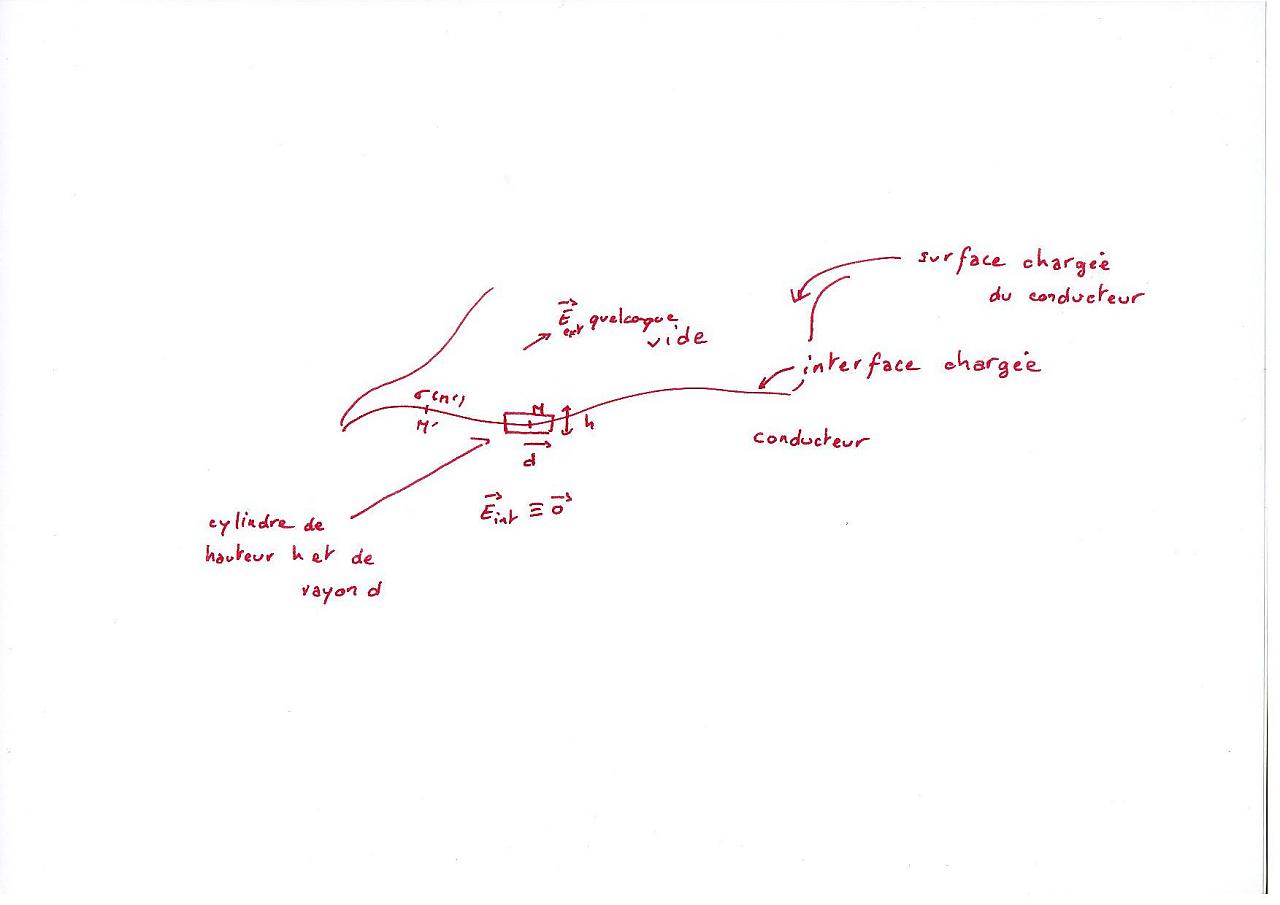 surface chargée
du conducteur
E⃗ext quelconque
vide
interface chargée
σ(M')
M'
M
h
d
conducteur
E⃗int ≡ 0⃗
cylindre de
hauteur h et de
rayon d